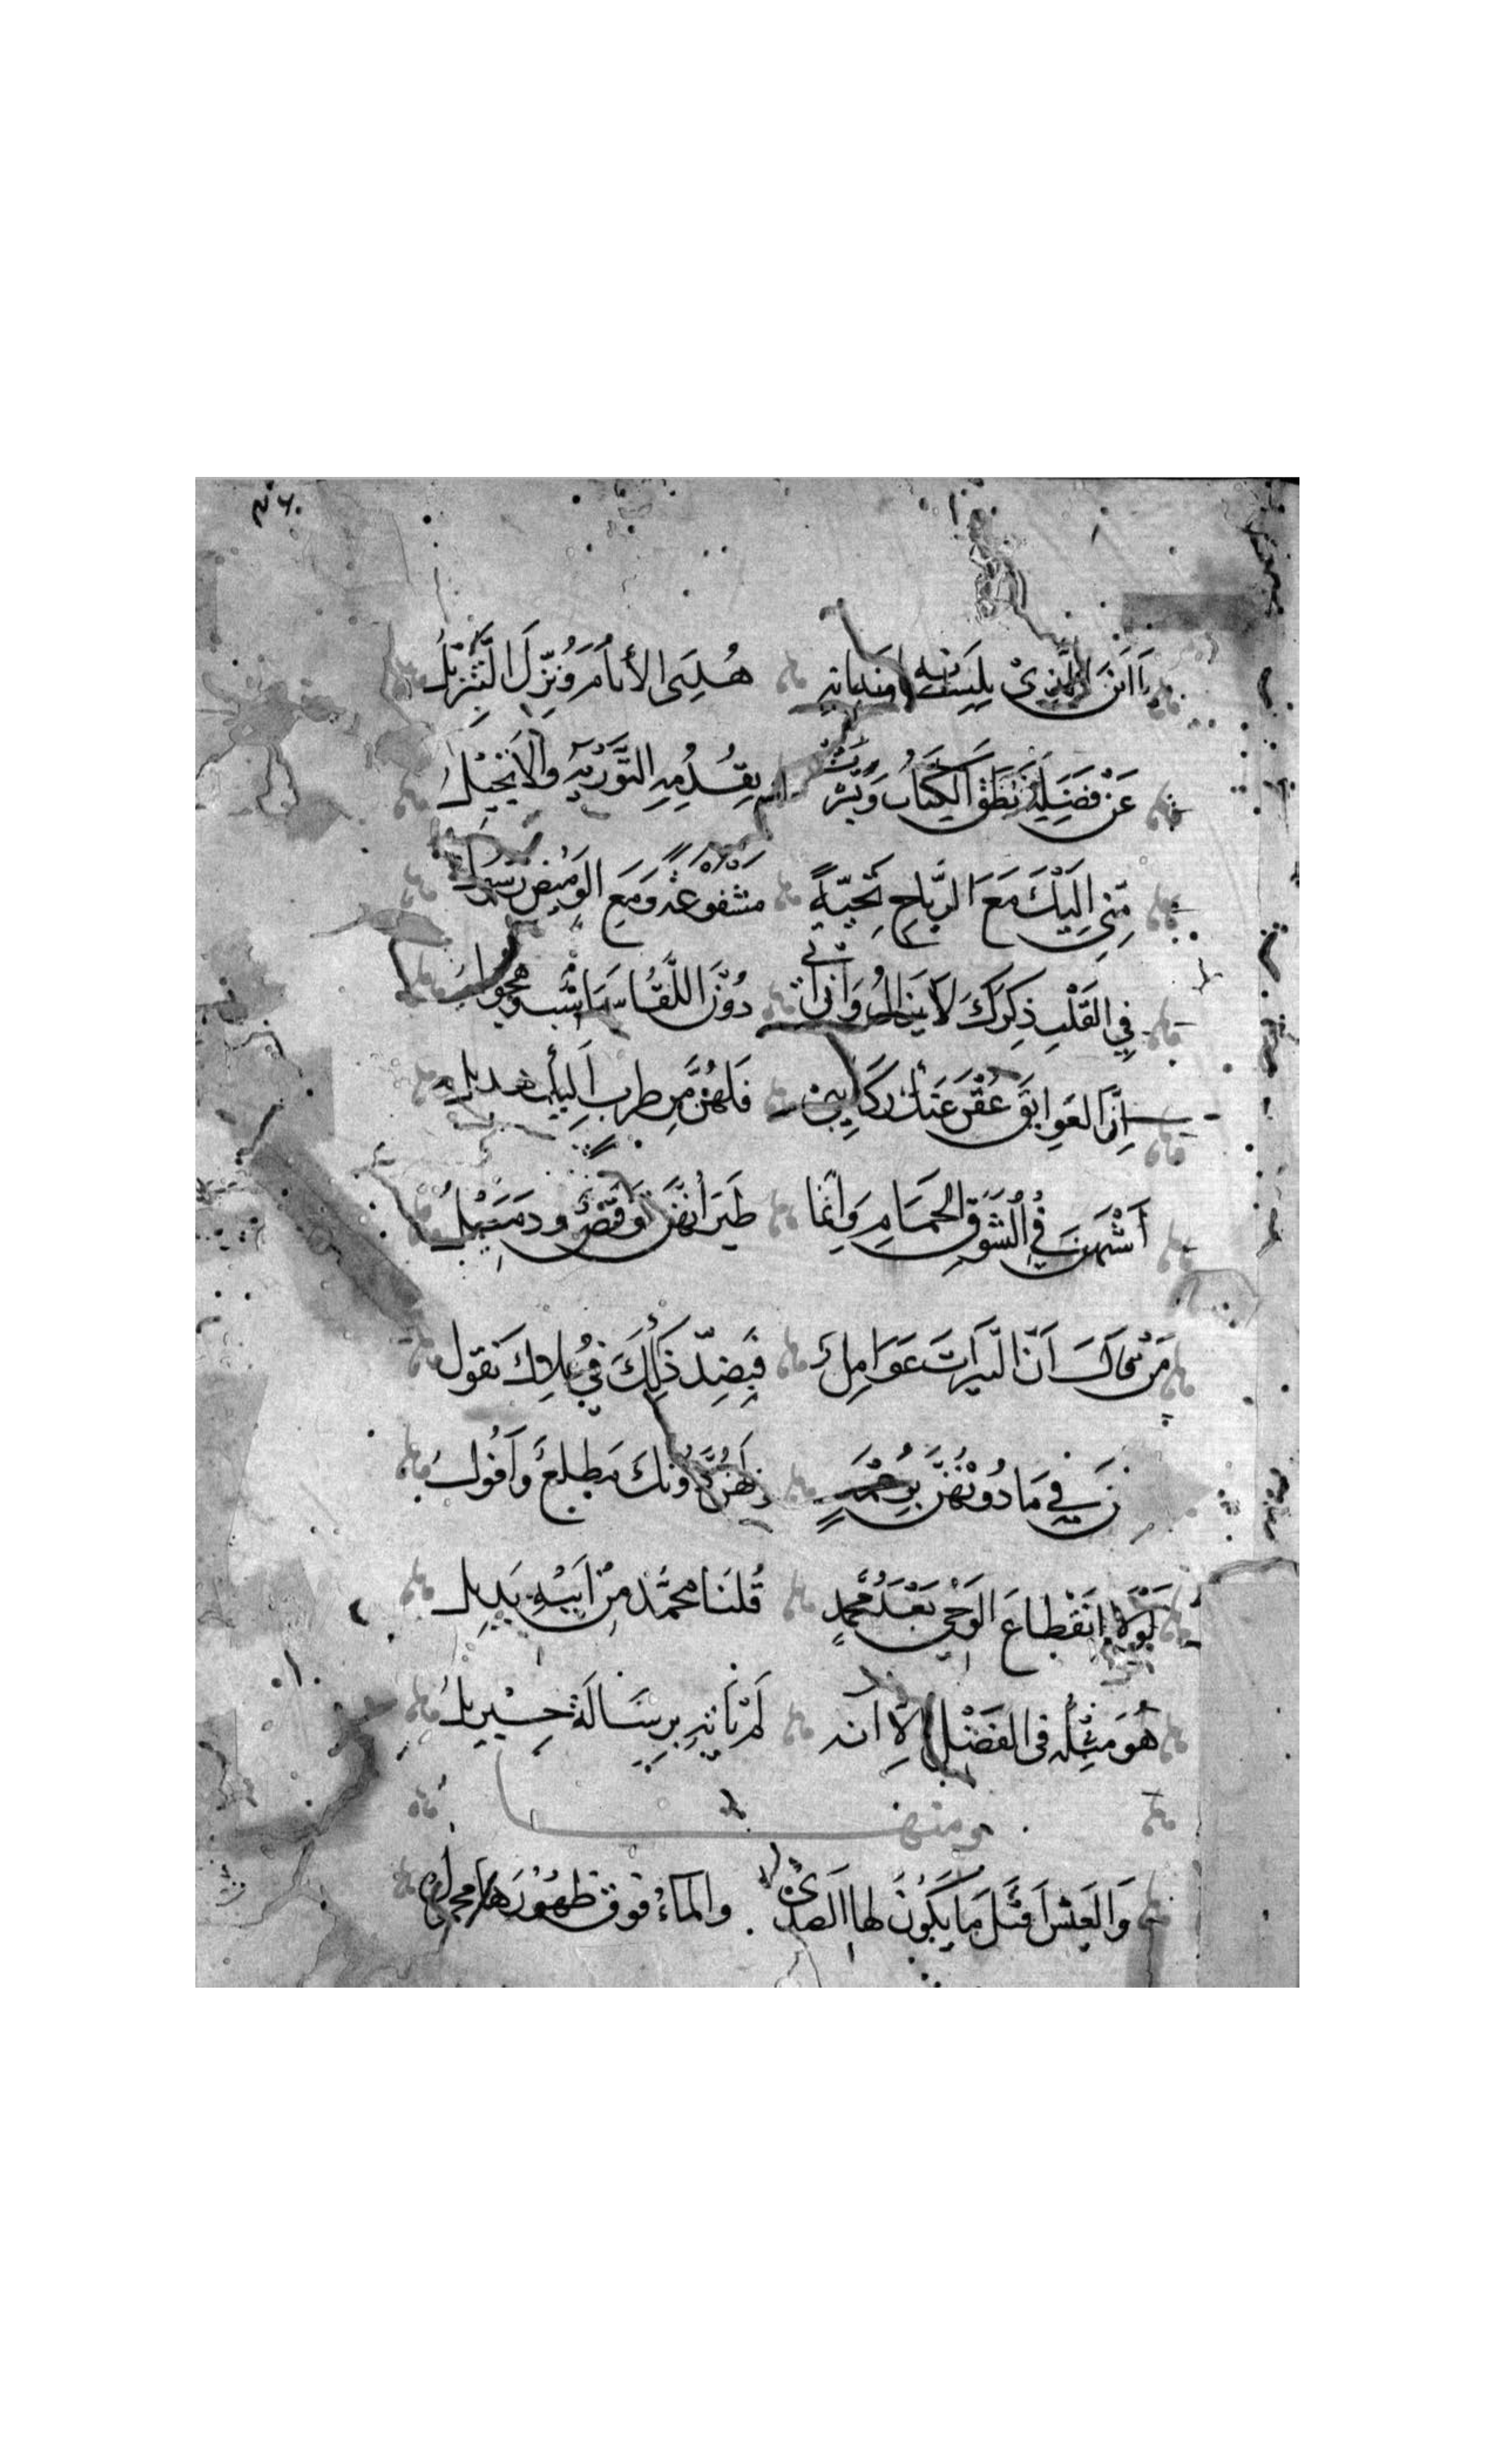 ٣٤٠
يَا ابْنَ الَّذِيْ بِلِسَانِهِ وَبَيَانِهِ هُدِيَ الأَنَامُ وَنُزِّلَ التَّنْزِيْلُ
عَنْ فَضْلِهِ نَطَقَ الكِتَابُ وَبَشَّرَتْ بِقُدُومِهِ التَّوْرَيةُ وَالاِنْجِيْلُ
مِنِّي اِلَيْكَ مَعَ الرِّيَاحِ تَحِيَّةً مَشْفُوْعَةٌ وَمَعَ الوَمِيْضِ رَسُوْلُ
فِي القَلْبِ ذِكْرُكَ لَا يَزَالُ وَاِنْ اَتَى دُوْنَ اللِّقَا سَبَاسِبٌ وَهُجُولُ
اِنَّ العَوَايِقَ عُقْنَ عَنْكَ رَكَايِبِي فَلَهُنَّ مِن طَرَبٍ اِلَيْكَ هَدِيلُ
أَشْبَهْنَ فِي الشَّوْقِ الحَمَامَ وَاِنَّمَا طَيَرَانُهُنَّ تَوَقُّصٌ وَذَمِيْلُ
مَنْ حَاكَ اَنَّ النَّيِّرَاتِ عَوَامِلٌ فَبِضِدِّ ذَلِكَ فِي عُلَاكَ نَقُولُ
فِي مَا دُوْنَهُنَّ بِزُعْمِهِ وَلَهُنَّ دُونَكَ مَطْلَعٌ وَأُفُولُ
لَوْلَا انْقِطَاعُ الوَحْيِ بَعْدَ مُحَمَّدٍ قُلْنَا مُحَمَّدٌ مِنْ اَبِيْهِ بَدِيلُ
هُوَ مِثْلُهُ فِي الفَضْلِ اِلَّا اَنَّهُ لَمْ يَأْتِهِ بِرِسَالَةٍ جِبْرِيلُ
ومنها
وَالعِيْسُ اَقْتَلُ مَا يَكُوْنُ لَهَا الصَّدَى وَالمَاءُ فَوْقَ ظُهُوْرِهَا مَحْمُولُ